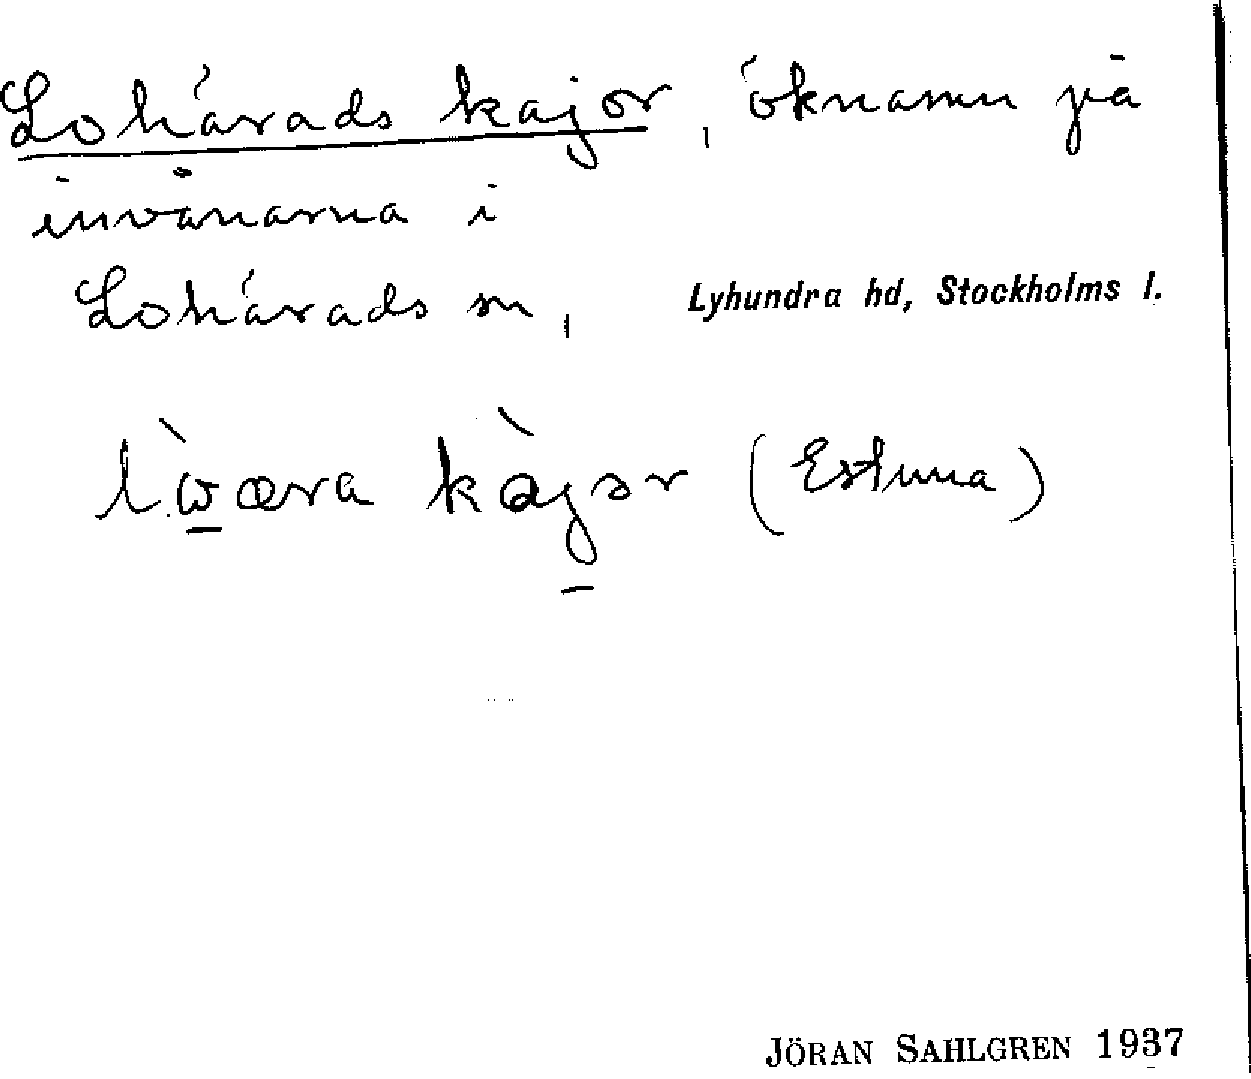 Lohärads kajor, öknamn på
invånarna i
Lohärads sn, Lyhundra hd, Stockholms l.
lẁæra kàjər (Estuna)
JÖRAN SAHLGREN 1937